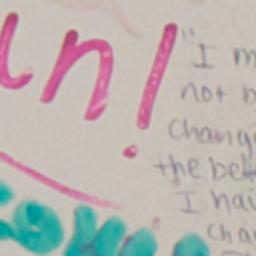 in!
"I m
not b
chang
the bett
I hai
cha